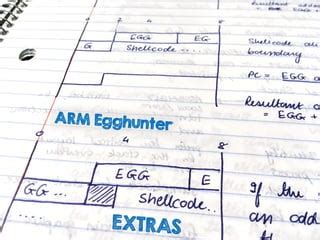 Resultant addre
EGG
EG
G
Shellcode...
Shellcode al
boundary
PC = EGG a
Resultant a
= EGG +
ARM Egghunter
0
4
8
EGG
E
GG...
Shellcode..
If the
an odd
EXTRAS